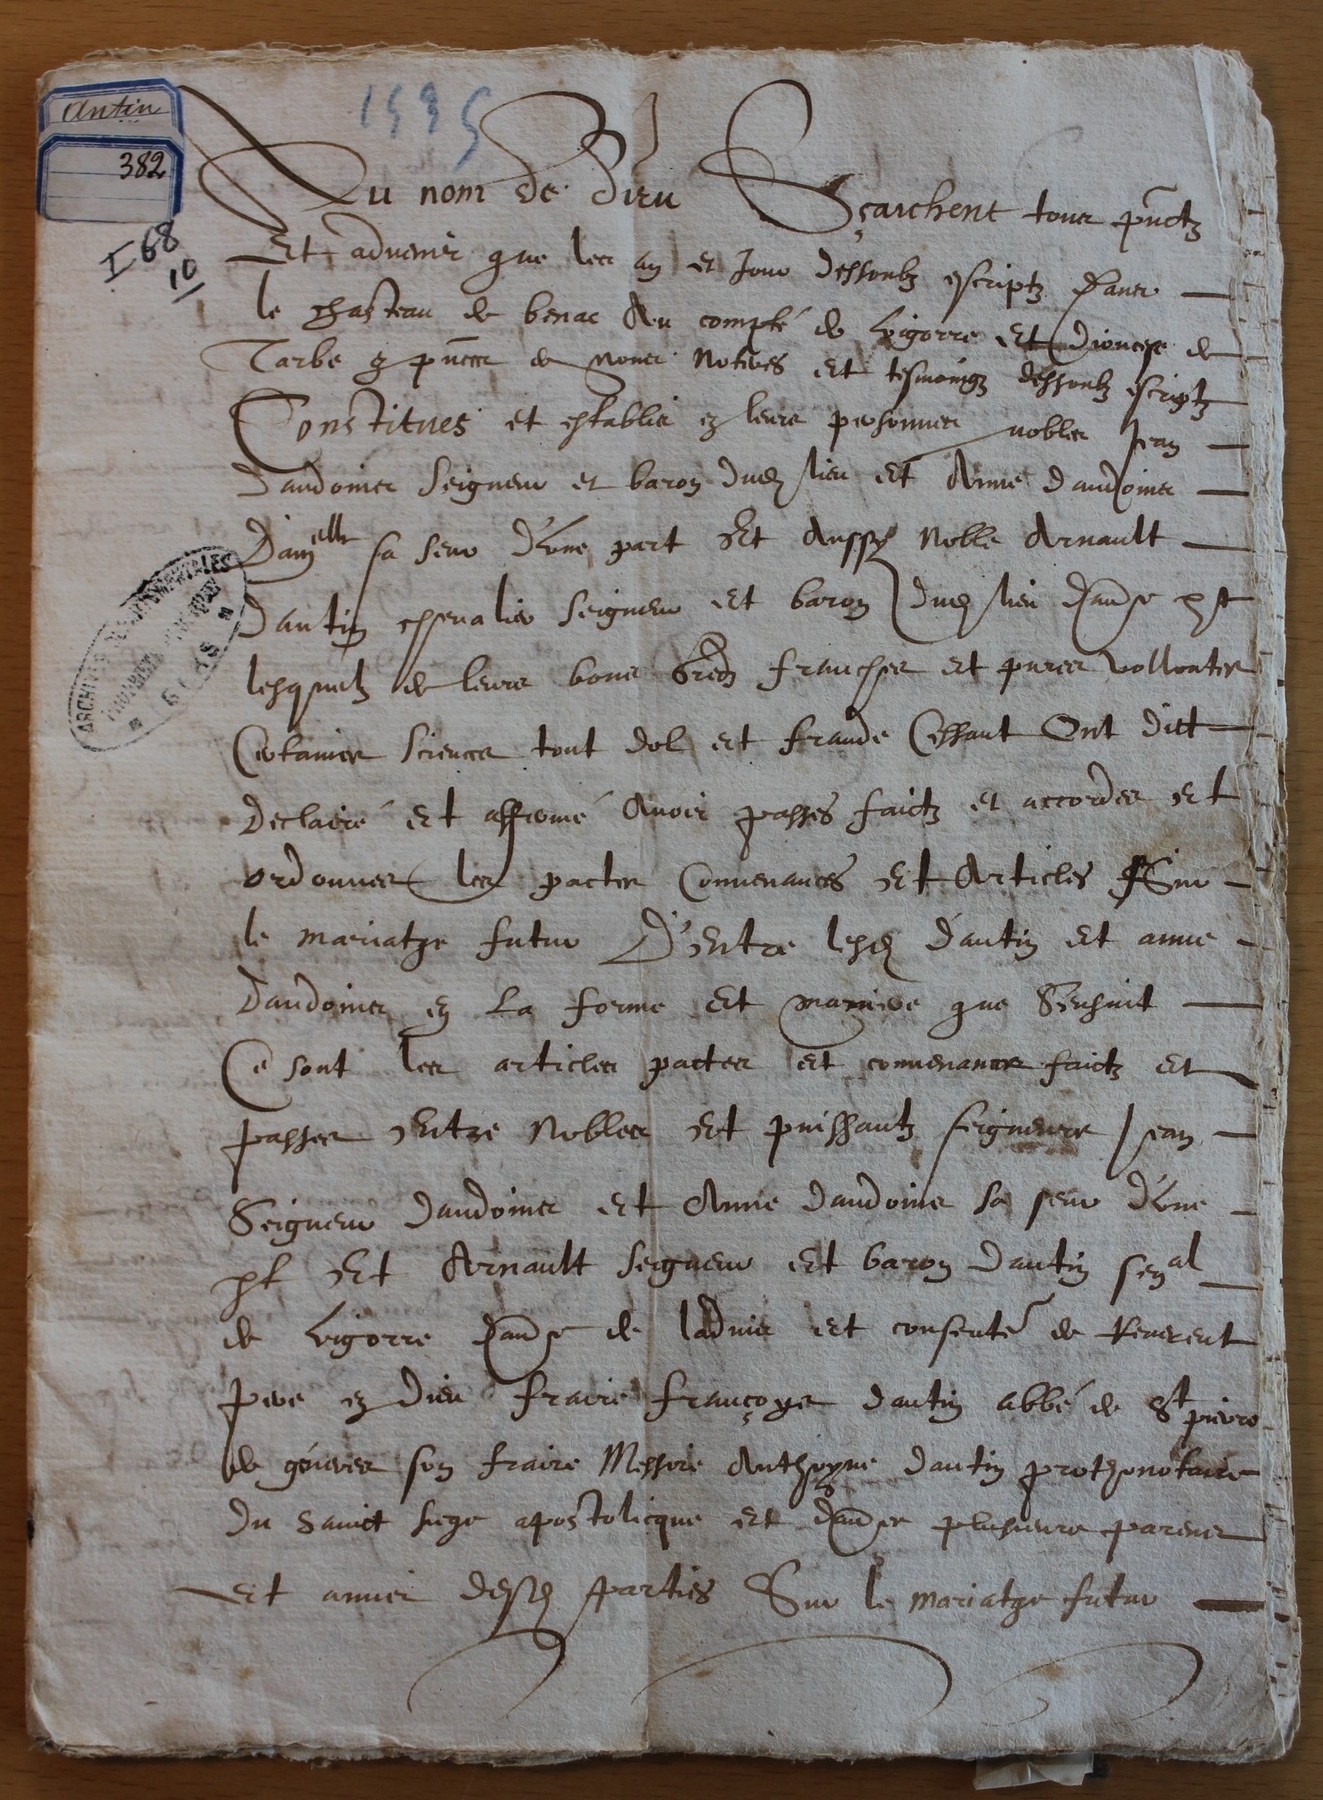 Antin
382
I 68
10
1535
Au nom de Dieu Sçaichent tous pñtz
Et advenir que les an et Jour dessoubz escriptz dans
le chasteau de benac Au compté de bigorre Et Diocese de
Tarbe et pñce de Nous Notres Et tesmoingz dessoubz escriptz
Constitues et establis en leurs personnes nobles Jean
Dandoins Seigneur et baron dud lieu Et Anne Dandoins
Damelle sa seur d'Une part Et Aussy Noble Arnault
Dantin chevalier Seigneur Et baron dud lieu dautre pt
lesquelz de leurs bons Gredz franches Et pures vollontes
Certaines sciences tout dol et fraude Cessant Ont dict
Declairé Et affirmé Avoir passes faictz et accordes Et
ordonnes les pactes Convenances Et Articles Sur
le mariatge futur D'Entre lesd dantin Et anne
Dandoins en La forme Et maniere que S'ensuit
Ce sont les articles pactes Et convenances faictz Et
passes Entre Nobles Et puissantz seigneurs Jean
Seigneur dandoins Et Anne dandoins sa seur d'Une
pt Et Arnault seigneur Et baron Dantin senal
de bigorre dautre de ladvis Et consente de Reverent
Pere en Dieu fraire françoys dantin abbé de St pierre
de generes son fraire Messire Anthoyne dantin prothonotaire
Du Sainct siege apostolicque Et dautres plusieurs parens
Et amis desd parties Sur le mariatge futur
ARCHIVES DEPARTEMENTALES
GERS